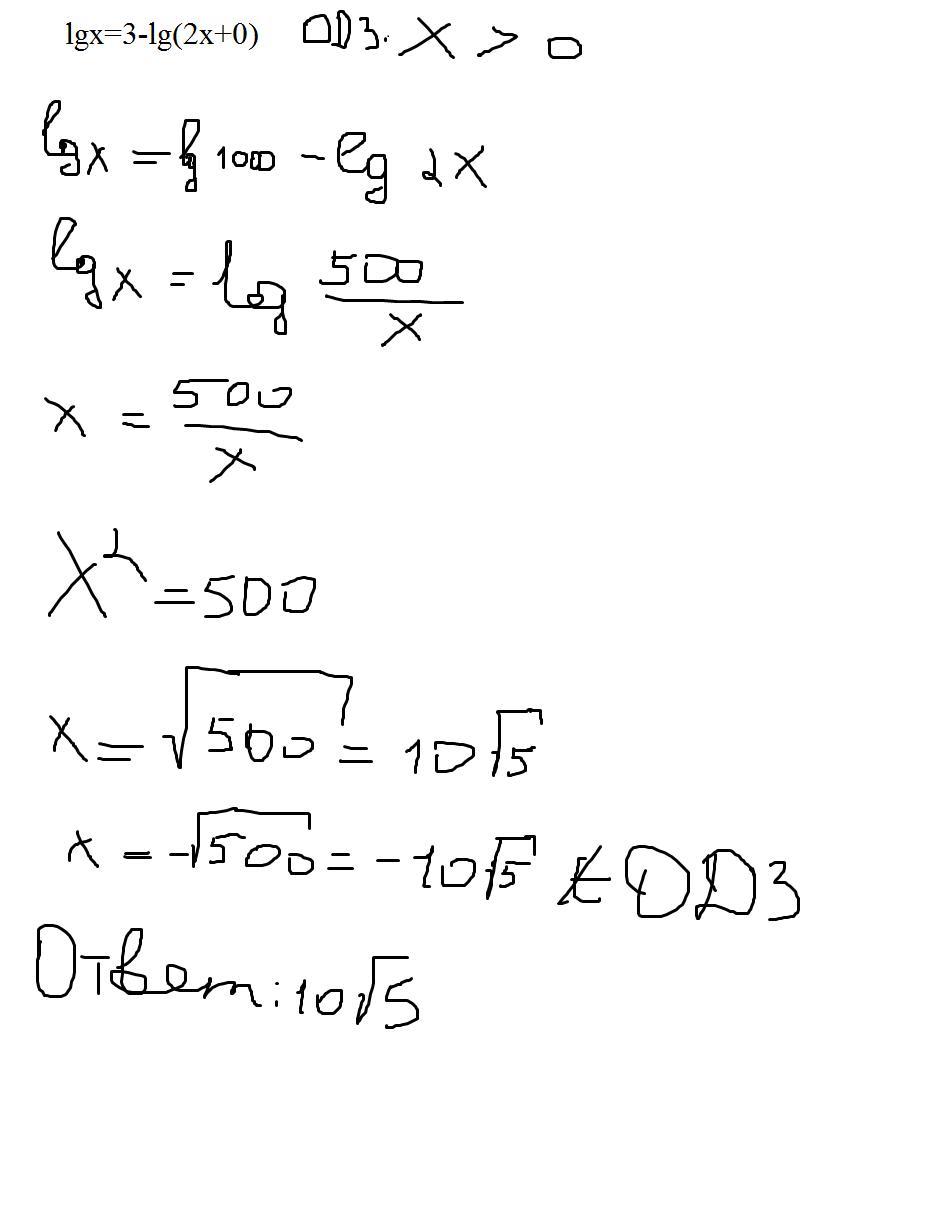 lgx=3-lg(2x+0) ОДЗ. x > 0
lg x = lg 1000 - lg 2x
lg x = log 500/x
x = 500/x
x² = 500
x = √500 = 10√5
x = -√500 = -10√5 ∉ ОДЗ
Ответ: 10√5